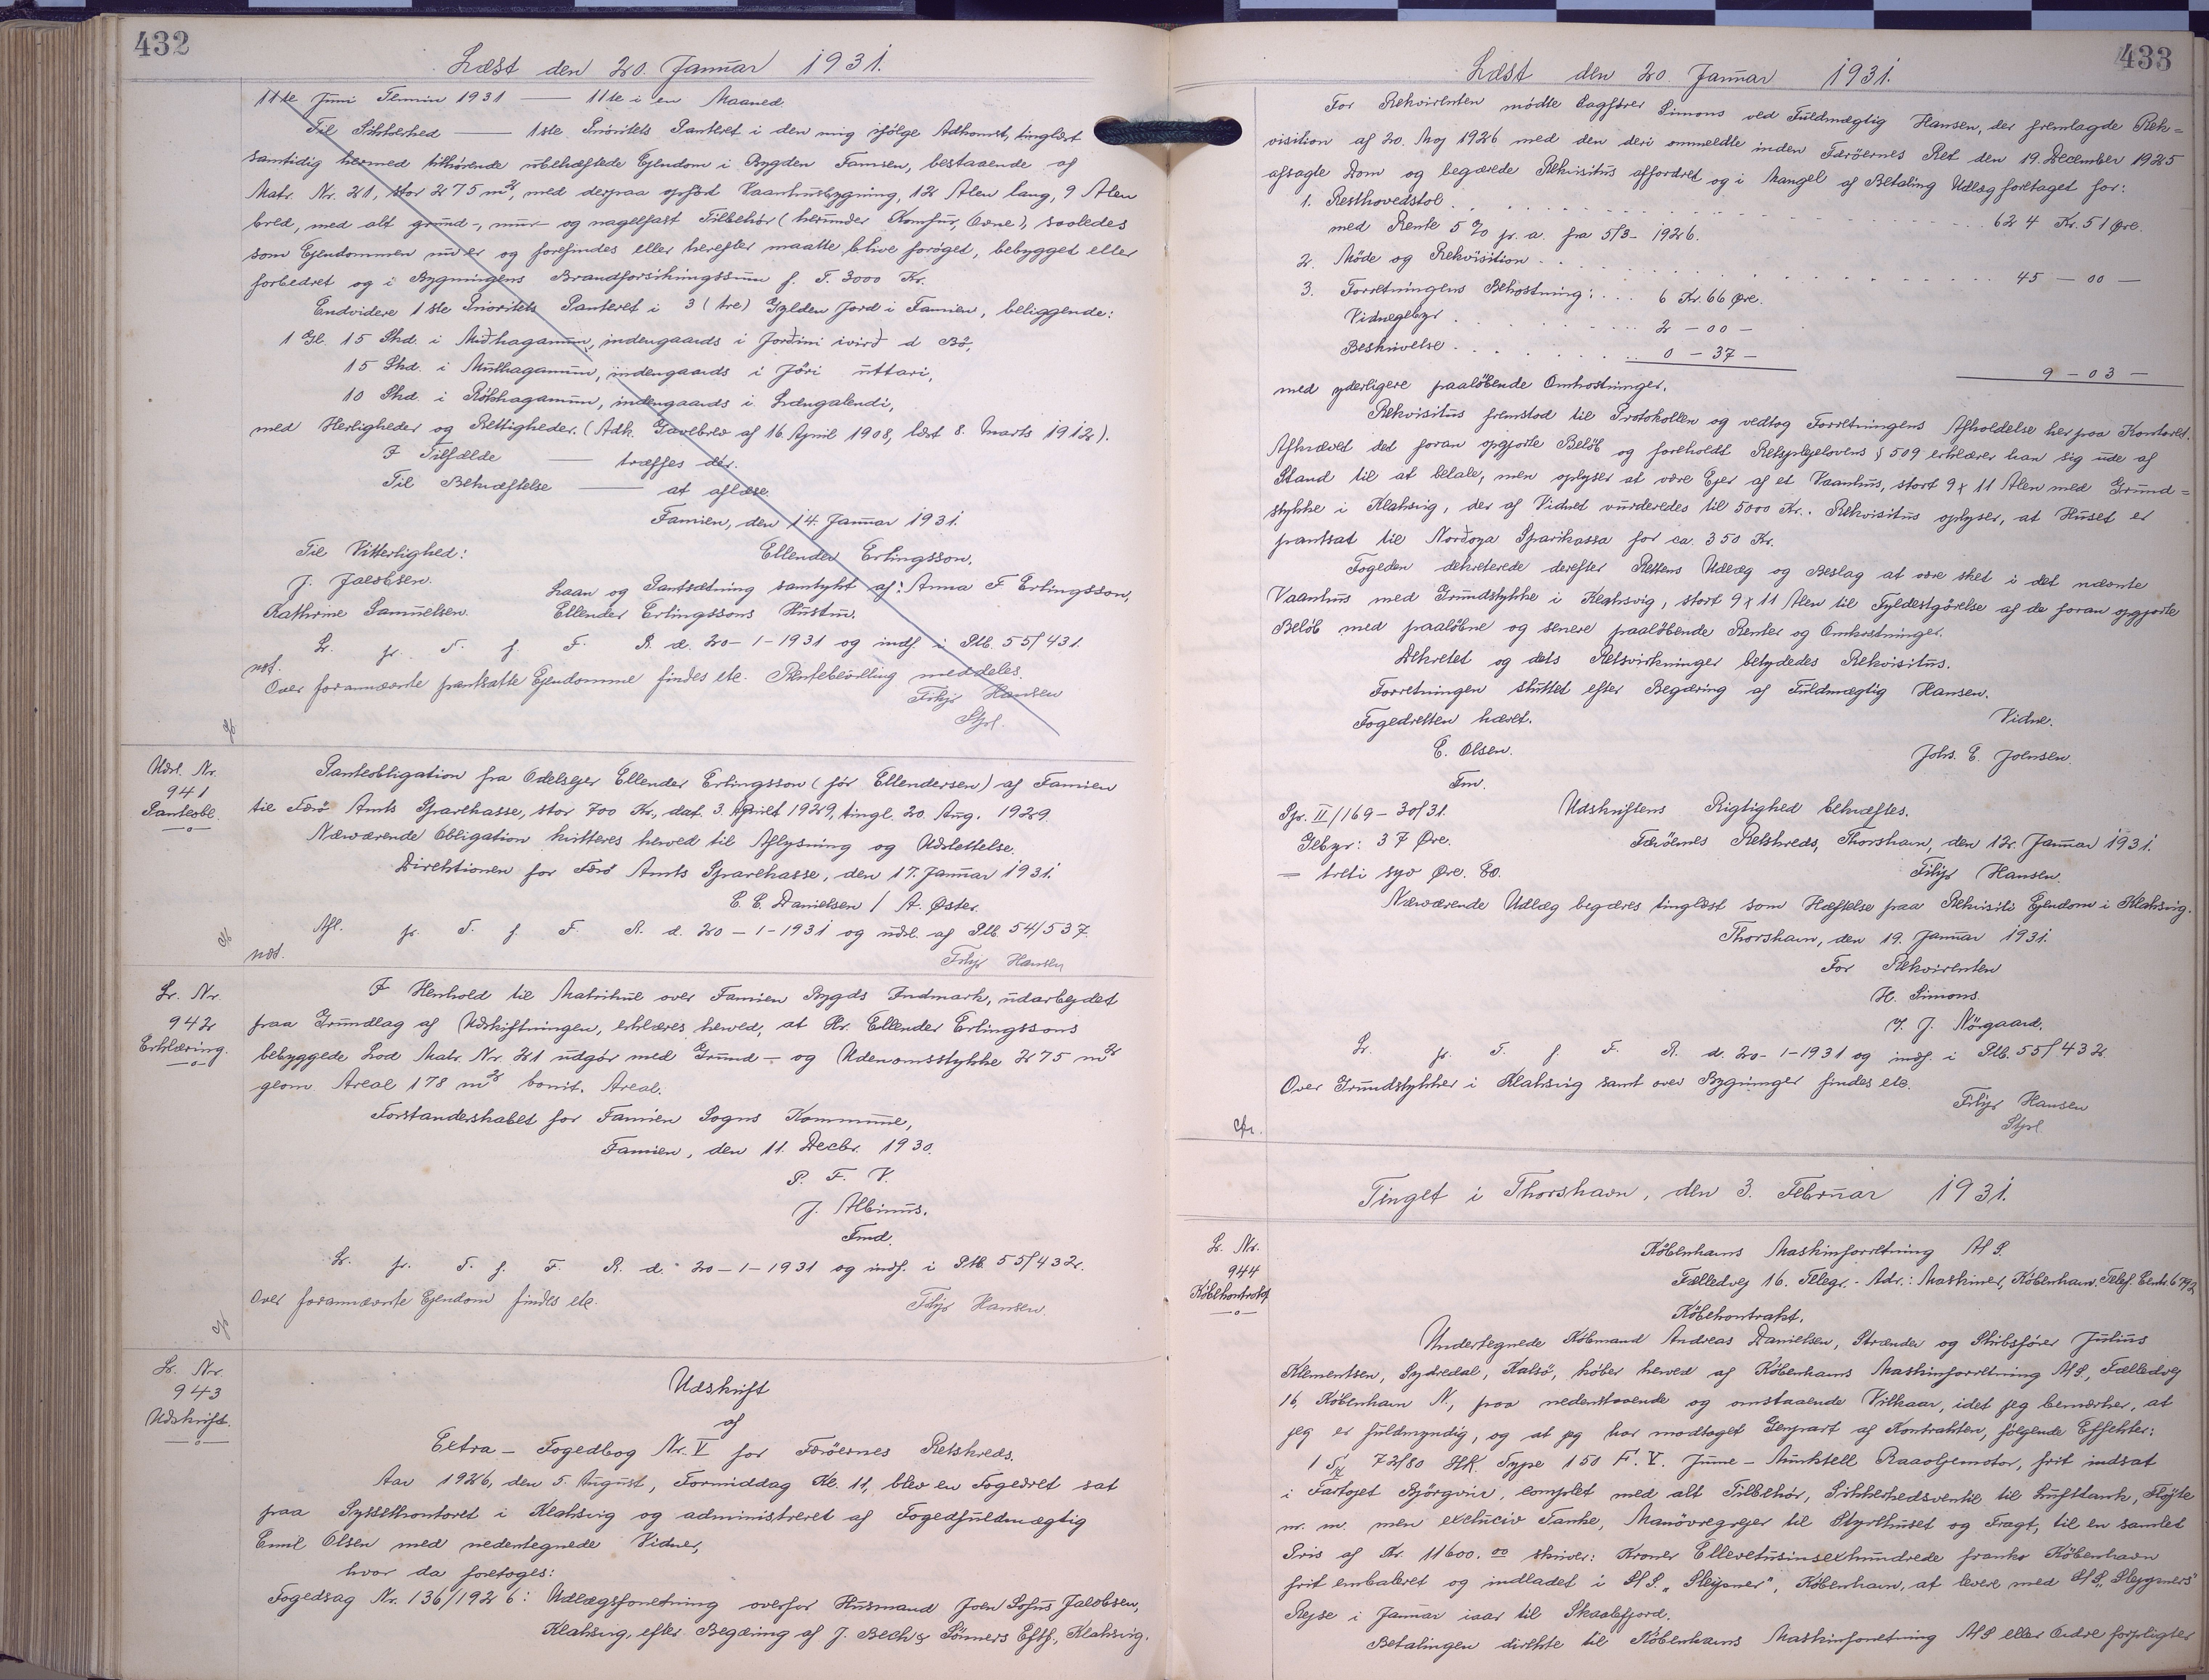 432
Læst den 20. Januar 1931.
11te Juni Termin 1931 — 11te i en Maaned
Til Sikkerhed — 1ste Prioritets Panteret i den mig ifölge Adkomst, tinglæst
samtidig hermed tilhørende ubehæftede Ejendom i Bygden Famien, bestaaende af
Matr. Nr. 21, stor 275 m², med derpaa opført Vaanhusbygning, 12 Alen lang, 9 Alen
bred, med alt grund-, mur- og nagelfast Tilbehör (herunder Komfur, Ovne), saaledes
som Ejendommen nu er og forefindes eller herefter maatte blive forøget, bebygget eller
forbedret og i Bygningens Brandforsikringssum f. T. 3000 Kr.
Endvidere 1ste Prioritets Panteret i 3 (tre) Gylden Jord i Famien, beliggende:
1 Gl. 15 Skd. i Miðhagamun, indengaards i Jorðini ivirð á Bö,
15 Skd. i Mullhagamun, indengaards i Jöri uttari,
10 Skd. i Rókshagamun, indengaards i Længalendi,
med Herligheder og Rettigheder. (Adk. Gavebrev af 16. April 1908, læst 8. Marts 1912).
I Tilfælde — træffes der.
Til Bekræftelse — at aflæse.
Famien, den 14. Januar 1931.
Til Vitterlighed: Ellender Erlingsson.
J. Jacobsen. Laan og Pantsætning samtykt af: Anna F Erlingsson,
Kathrine Samuelsen. Ellender Erlingssons Hustru.
L. fr. T. f. F. R. d. 20-1-1931 og indf. i Ptb. 55/431.
not.
Over forannævnte pantsatte Ejendomme findes etc. Rentebevilling meddeles.
Filip Hansen
Stpl.
Udsl. Nr.
941
Panteobl.
Panteobligation fra Odelsejer Ellender Erlingsson (før Ellendersen) af Famien
til Færö Amts Sparekasse, stor 700 Kr., dat. 3. April 1929, tingl. 20. Aug. 1929.
Nærværende Obligation kvitteres herved til Aflysning og Udslettelse.
Direktionen for Færö Amts Sparekasse, den 17. Januar 1931.
C. C. Danielsen / A. Øster.
Afl. fr. T. f. F. R. d. 20-1-1931 og udsl. af Ptb. 54/537.
not. Filip Hansen
L. Nr.
942
Erklæring.
I Henhold til Matrikul over Famien Bygds Indmark, udarbejdet
paa Grundlag af Udskiftningen, erklæres herved, at Hr. Ellender Erlingssons
bebyggede Lod Matr. Nr. 21 udgør med Grund- og Udenomsstykke 275 m²
geom. Areal 178 m² bonit. Areal.
Forstanderskabet for Famien Sogns Kommune,
Famien, den 11. Decbr. 1930.
P. F. V.
J. Albinus.
Fmd.
L. fr. T. f. F. R. d. 20-1-1931 og indf. i Ptb. 55/432.
Over forannævnte Ejendom findes etc. Filip Hansen.
L. Nr.
943
Udskrift.
Udskrift
af
Extra-Fogedbog Nr. V for Færöernes Retskreds.
Aar 1926, den 5. August, Formiddag Kl. 11, blev en Fogedret sat
paa Sysselkontoret i Klaksvig og administreret af Fogedfuldmægtig
Emil Olsen med nedentegnede Vidner,
hvor da foretoges:
Fogedsag Nr. 136/1926: Udlægsforretning overfor Husmand Joen Sofus Jacobsen,
Klaksvig, efter Begæring af J. Bech & Sönners Eftf., Klaksvig.
433
Læst den 20. Januar 1931.
For Rekvirenten mödte Sagfører Simons ved Fuldmægtig Hansen, der fremlagde Rek=
visition af 20. Maj 1926 med den deri ommeldte inden Færöernes Ret den 19. December 1925
afsagte Dom og begærede Rekvisitus affordret og i Mangel af Betaling Udlæg foretaget for:
1. Resthovedstol . . . 624 Kr. 51 Øre.
med Rente 5% p. a. fra 5/3-1926.
2. Möde og Rekvisition . . . 45 — 00 —
3. Forretningens Bekostning: . . . 6 Kr. 66 Øre.
Vidnegebyr . . . 2 - 00 -
Beskrivelse . . . 0 - 37 -
9 - 03 -
med yderligere paalöbende Omkostninger.
Rekvisitus fremstod til Protokollen og vedtog Forretningens Afholdelse her paa Kontoret.
Afkrævet det foran opgjorte Belöb og foreholdt Retsplejelovens § 509 erklærer han sig ude af
Stand til at betale, men oplyser at være Ejer af et Vaanhus, stort 9 x 11 Alen med Grund=
stykke i Klaksvig, der af Vidnet vurderedes til 5000 Kr. Rekvisitus oplyser, at Huset er
pantsat til Norðoya Sparikassa for ca. 350 Kr.
Fogeden dekreterede derefter Rettens Udlæg og Beslag at være sket i det nævnte
Vaanhus med Grundstykke i Klaksvig, stort 9 x 11 Alen til Fyldestgörelse af de foran opgjorte
Belöb med paaløbne og senere paalöbende Renter og Omkostninger.
Dekretet og dets Retsvirkninger betydedes Rekvisitus.
Forretningen sluttet efter Begæring af Fuldmægtig Hansen.
Fogedretten hævet. Vidne.
E. Olsen. Johs. E. Joensen.
Fm.
Pjr. II/169-30/31. Udskriftens Rigtighed bekræftes.
Gebyr: 37 Øre. Færöernes Retskreds, Thorshavn, den 12. Januar 1931.
— treti syv Øre. EO. Filip Hansen.
Nærværende Udlæg begæres tinglæst som Hæftelse paa Rekvisiti Ejendom i Klaksvig.
Thorshavn, den 19. Januar 1931.
For Rekvirenten
H. Simons.
J. Nörgaard.
L. fr. T. f. F. R. d. 20-1-1931 og indf. i Ptb. 55/432.
Over Grundstykker i Klaksvig samt over Bygninger findes etc.
Filip Hansen
Stpl
Tinget i Thorshavn, den 3. Februar 1931.
L. Nr.
944
Købekontrakt
Københavns Maskinforretning A/S.
Fælledvej 16. Telegr.-Adr.: Maskiner, København. Telef. Centr. 6792
Købekontrakt.
Undertegnede Købmand Andreas Danielsen, Strænder og Skibsfører Julius
Klementsen, Sydredal, Kalsö, köber herved af Københavns Maskinforretning A/S, Fælledvej
16, København N., paa nedenstaaende og omstaaende Vilkaar, idet jeg bemærker, at
jeg er fuldmyndig, og at jeg har modtaget Genpart af Kontrakten, følgende Effekter:
1 72/80 HK. Type 150 F. V. June-Munktell Raaoljemotor, frit indsat
i Fartøjet Björgvin, complet med alt Tilbehör, Sikkerhedsventil til Lufttank, Fløjte
m. m. men exclusiv Tanke, Manövregrejer til Styrehuset og Fragt, til en samlet
Pris af Kr. 11600.00 skriver: Kroner Ellevetusinsexhundrede franko København
frit embaleret og indladet i S/S. „Sleipner", København, at levere med S/S „Sleipners"
Rejse i Januar iaar til Skaalefjord.
Betalingen direkte til Københavns Maskinforretning A/S eller Ordre forpligter